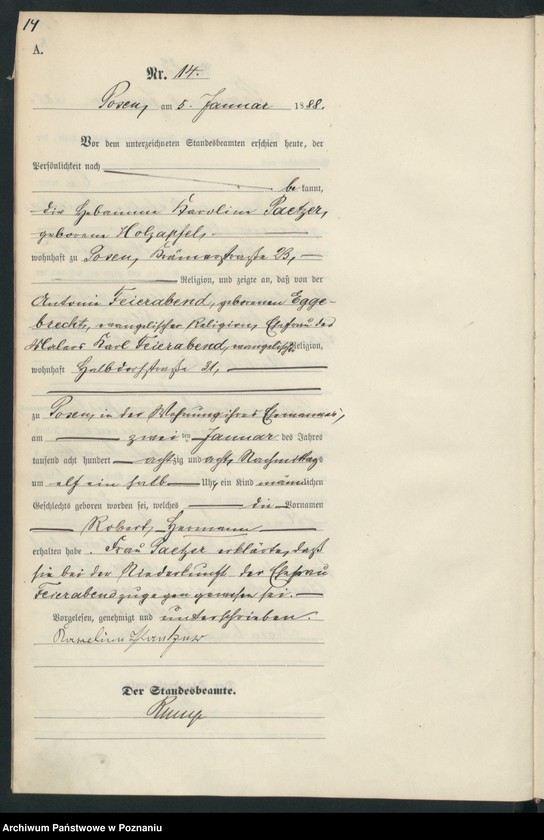 14
A.
Nr. 14.
Posen, am 5. Januar 1888.
Vor dem unterzeichneten Standesbeamten erschien heute, der
Persönlichkeit nach
be kannt,
die Hebamme Karoline Paetzer,
geborene Holzapfel,
wohnhaft zu Posen, Krämerstraße 23,
Religion, und zeigte an, daß von der
Antonie Feierabend, geborenen Egge-
brecht, evangelischer Religion, Ehefrau des
Malers Karl Feierabend, evangelischer Religion,
wohnhaft Halbdorfstraße 31,
zu Posen, in der Wohnung ihres Ehemannes,
am zwei ten Januar des Jahres
tausend acht hundert achtzig und acht, Nachmittags
um elf ein halb Uhr, ein Kind männlichen
Geschlechts geboren worden sei, welches die Vornamen
Robert Hermann
erhalten habe. Frau Paetzer erklärte, daß
sie bei der Niederkunft der Ehefrau
Feierabend zugegen gewesen sei.
Vorgelesen, genehmigt und unterschrieben.
Karoline Paetzer
Der Standesbeamte.
Archiwum Państwowe w Poznaniu